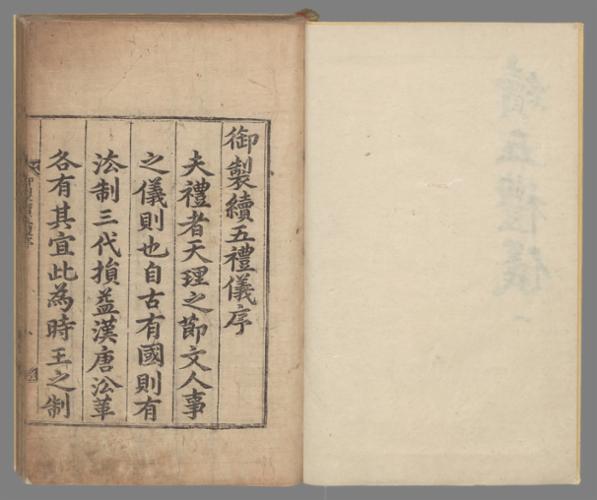 續五禮儀 一
御製續五禮儀序
夫禮者天理之節文人事
之儀則也自古有國則有
法制三代損益漢唐沿革
各有其宜此為時王之制